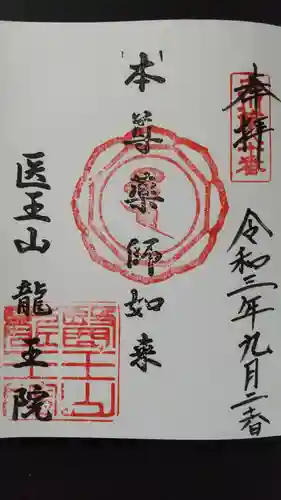 奉拝
令和三年九月二十二日
本尊薬師如来
医王山 龍王院